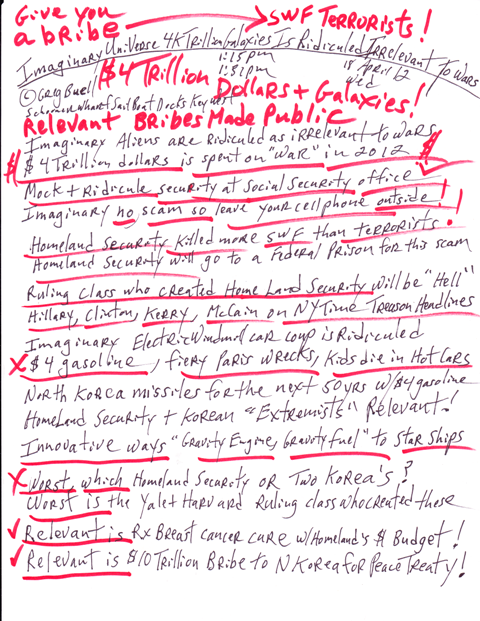 Give you a bribe → SWF TERRORISTS!
Imaginary Universe 4K Trillion Galaxies Is Ridiculed Irrelevant To Wars
© Greg Buell 1:15pm 15 April 12
1:31pm Wed
Schooner Wharf Sail Boat Docks Key West
$4 Trillion Dollars + Galaxies!
Relevant Bribes Made Public
Imaginary Aliens are Ridiculed as irrelevant to wars
$ $4 Trillion dollars is spent on "War" in 2012 $
Mock + Ridicule security at Social Security office
Imaginary no scam so leave your cellphone outside!!
Homeland Security killed more SWF than terrorists!
Homeland Security will go to a Federal Prison for this scam
Ruling Class who created Home Land Security will be "Hell"!
Hillary, Clinton, Kerry, McCain on NY Time Treason Headlines
Imaginary Electric Windmill car coup is Ridiculed
X $4 gasoline, fiery Paris wrecks, Kids die in Hot Cars
North Korea missiles for the next 50yrs w/$4 gasoline
Homeland Security + Korean "Extremists" Relevant!
Innovative ways "Gravity Engine, Gravity fuel" to Star Ships
X Worst, which Homeland Security or Two Korea's?
Worst is the Yale + Harvard Ruling class who created these
✓ Relevant is Rx Breast cancer cure w/Homeland's $ Budget!
✓ Relevant is $10 Trillion Bribe to N Korea for Peace Treaty!